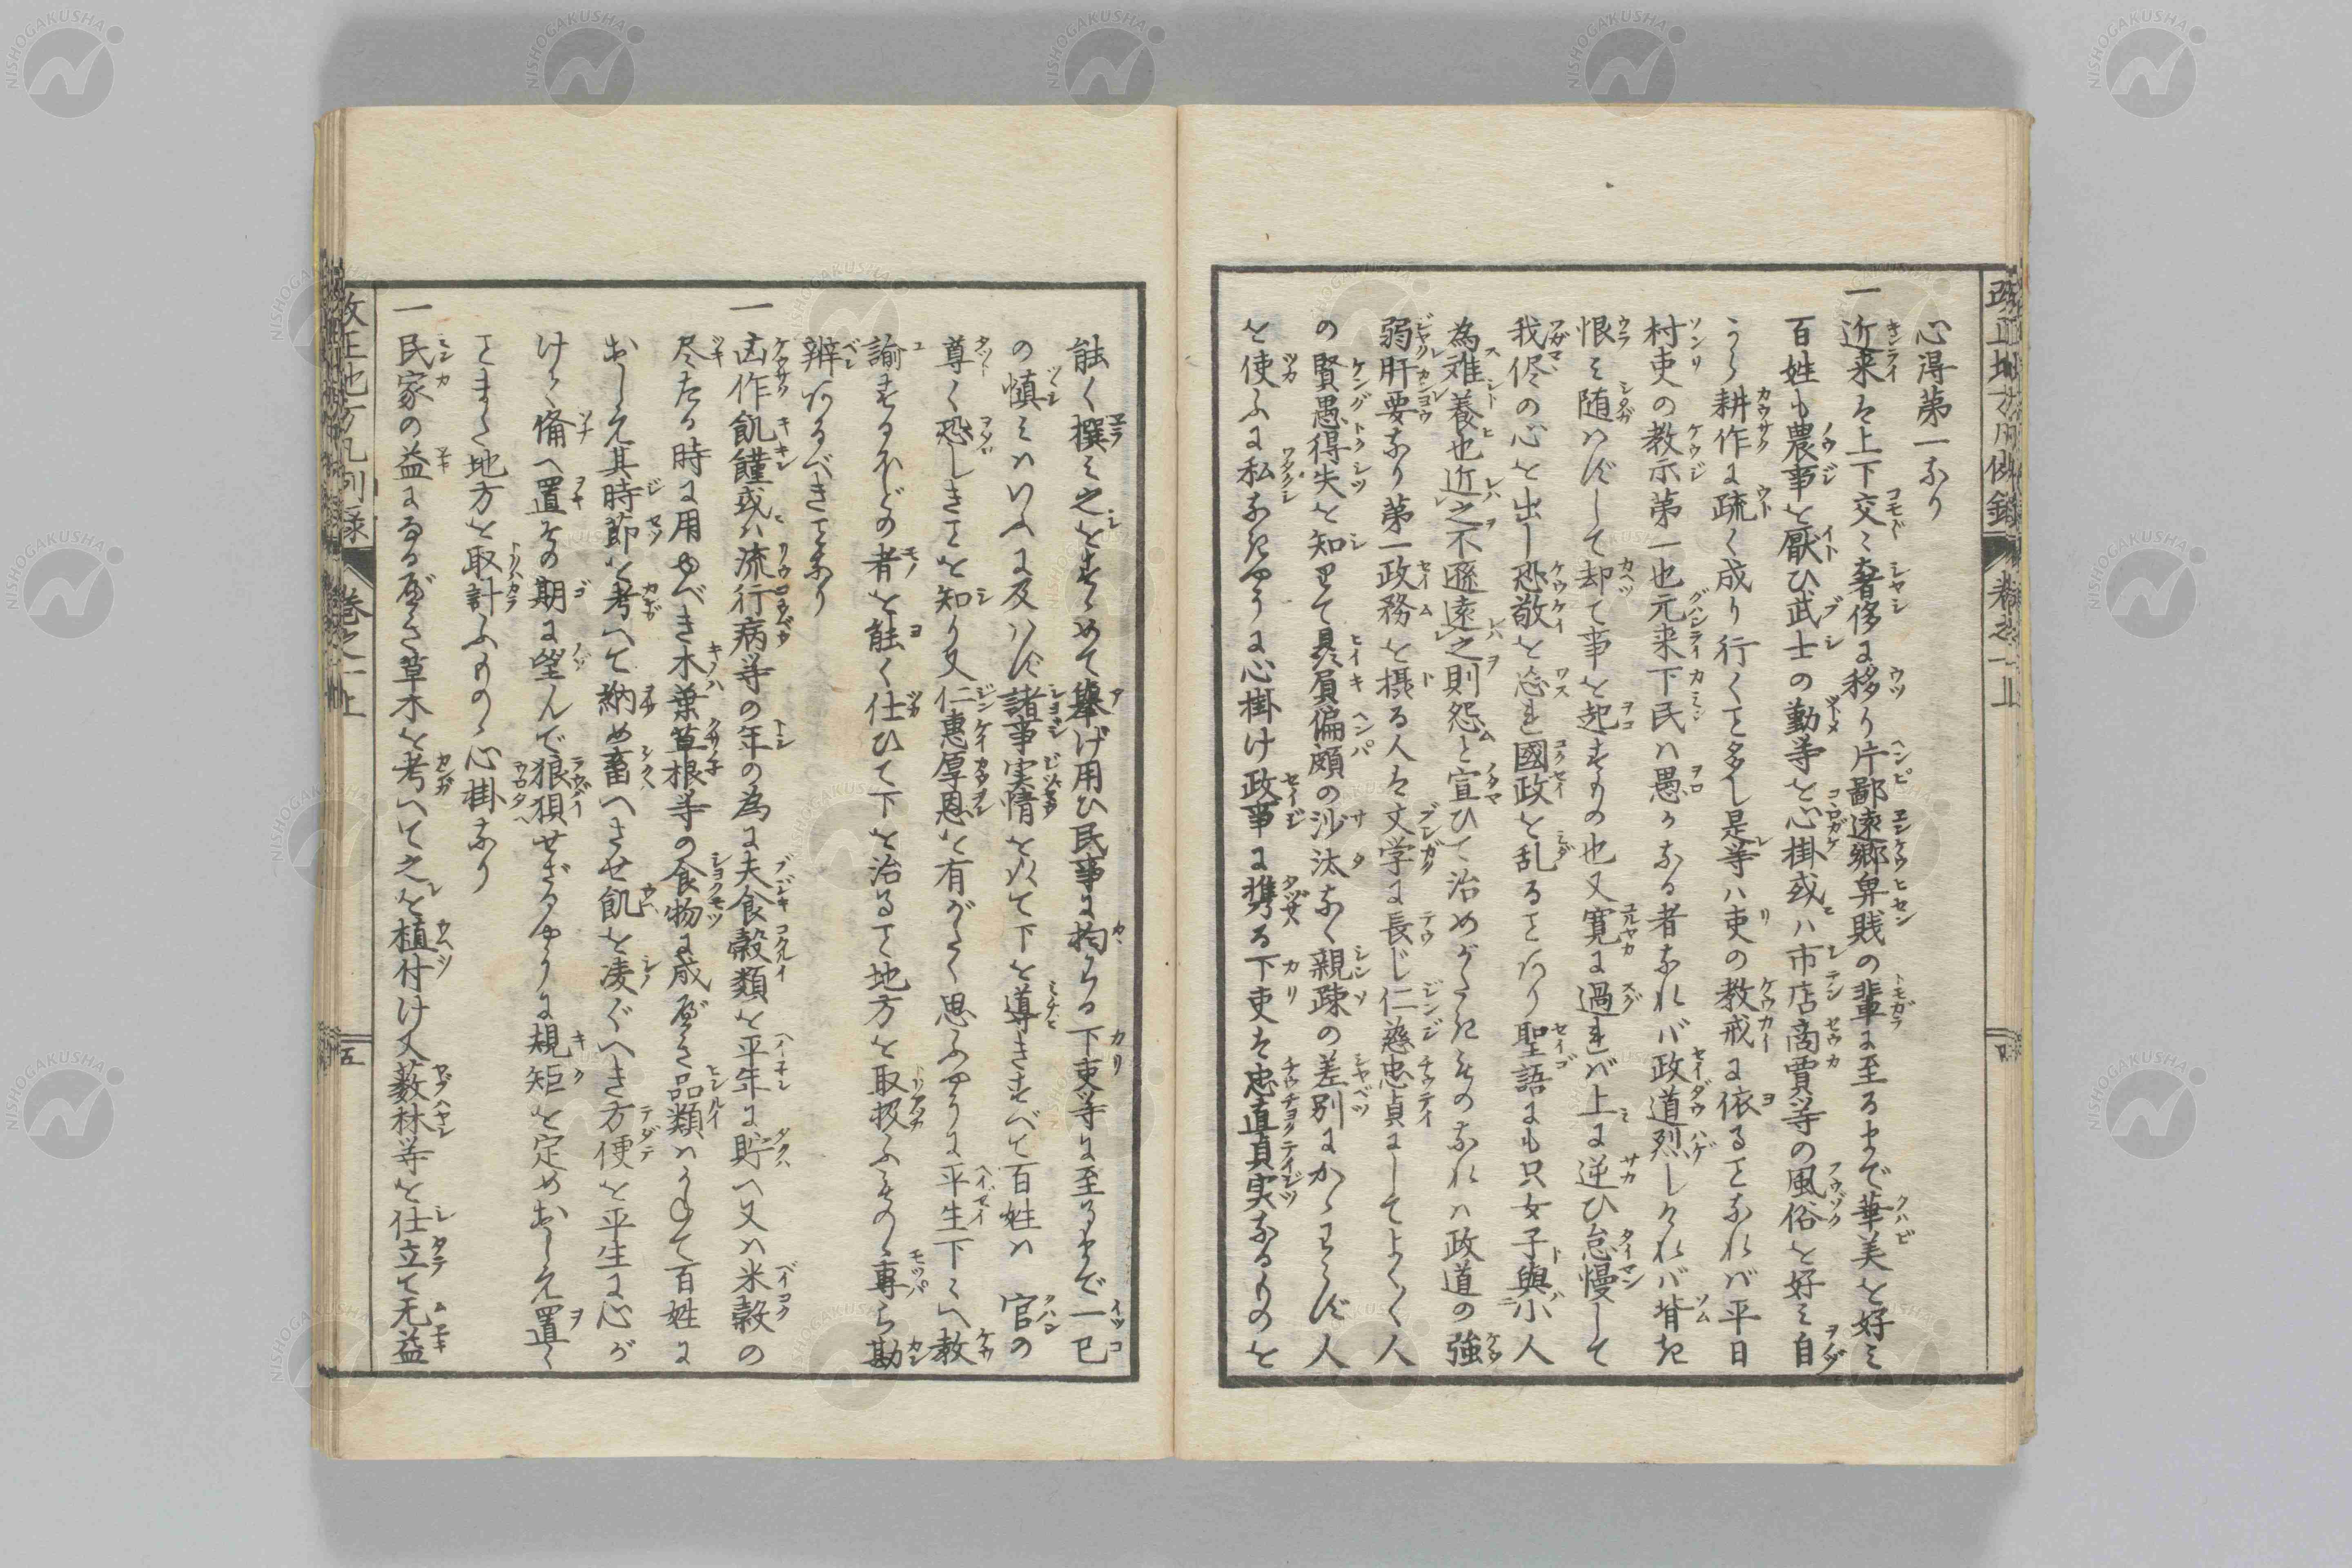 心得第一なり
一近来は上下交〻奢侈に移り片鄙遠郷卑賎の輩に至るまで華美を好ミ
百姓も農事を厭ひ武士の勤等を心掛或ハ市店商賈等の風俗を好ミ自
うら耕作に疏く成り行くこと多し是等ハ吏の教戒に依ることなれバ平日
村吏の教示第一也元来下民ハ愚かなる者なれバ政道烈しけれバ背き
恨ミ随ハずして却て事を起すもの也又寛に過れバ上に逆ひ怠慢して
我侭の心を出し恐敬を忘れ國政を乱ることあり聖語にも只女子與小人
為難養也近之不遜遠之則怨と宣ひて治めがたきものなれハ政道の強
弱肝要なり第一政務を摂る人は文学に長じ仁慈忠貞にしてよく〱人
の賢愚得失を知りて贔屓偏頗の沙汰なく親疎の差別にかゝわらず人
を使ふに私なきやうに心掛け政事に携る下吏は忠直貞実なるものを
能く撰ミ之をすゝめて擧げ用ひ民事に拘わる下吏等に至るまで一己
の慎ミハいふに及ハず諸事実情を以て下を導きすべて百姓ハ 官の
尊く恐しきことを知り又仁惠厚恩を有がたく思ふやうに平生下〻へ教
諭するほどの者を能く仕ひて下を治ること地方を取扱ふものゝ専ら勘
辨あるべきことなり
一凶作飢饉或ハ流行病等の年の為に夫食穀類を平年に貯へ又ハ米穀の
尽たる時に用ゆべき木葉草根等の食物に成べき品類ハかねて百姓に
おしえ其時節を考へて納め畜へさせ飢を凌ぐべき方便を平生に心が
けて備へ置その期に望んで狼狽せざるやうに規矩を定めおしえ置く
こと地方を取計ふものゝ心掛なり
一民家の益になるべき草木を考へて之を植付け又薮林等を仕立て无益
改正地方凡例録 巻之一上
改正地方凡例録 巻之一上 五
NISHOGAKUSHA